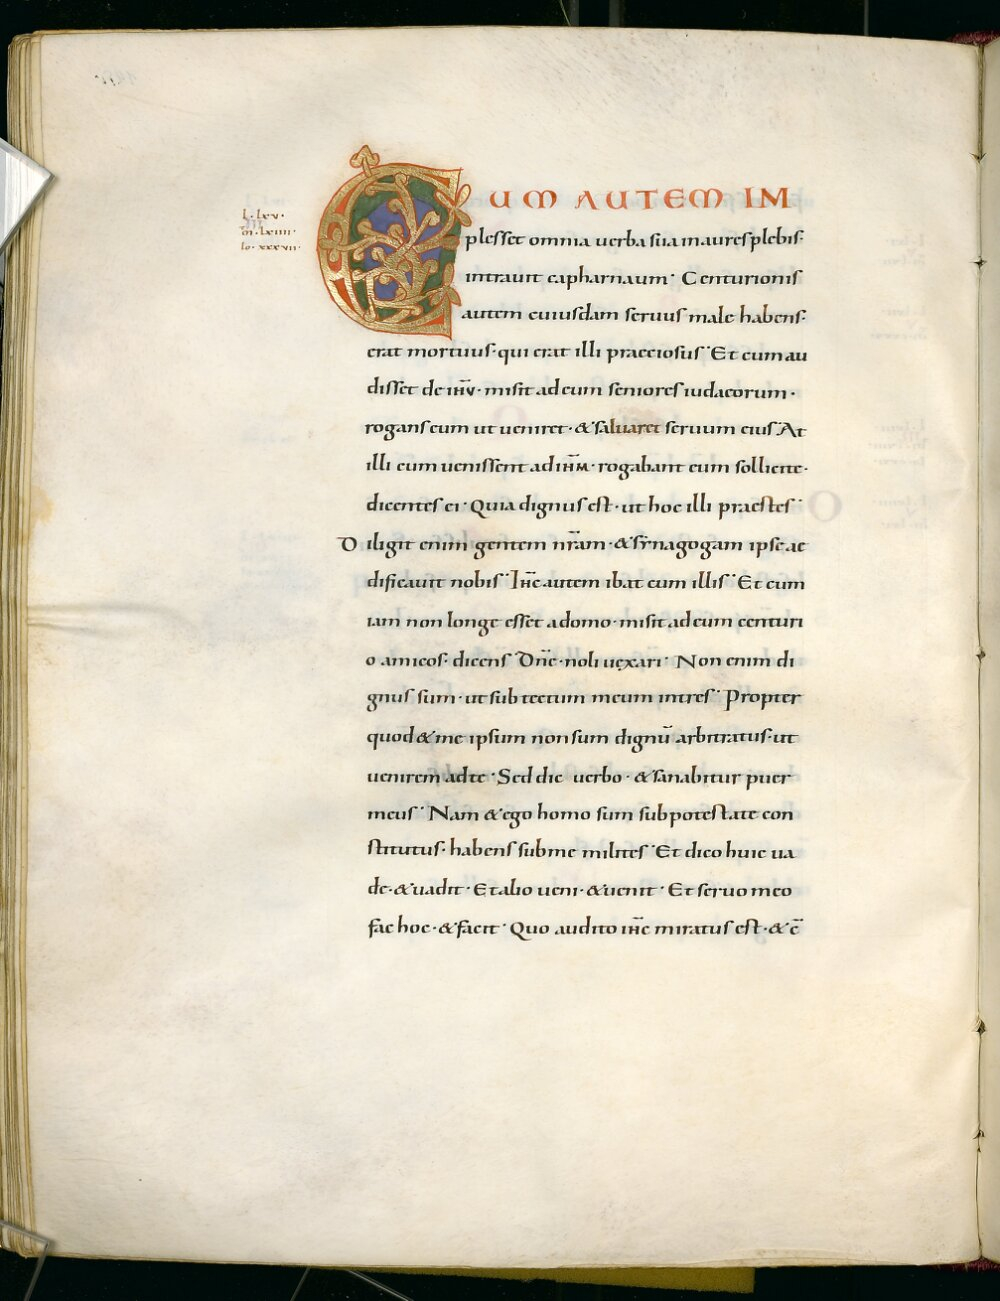 CUM AUTEM IM
l · lxv ·
m · lxiiii ·
Io · xxxvii ·
plesset omnia uerba sua in aures plebis·
intrauit capharnaum· Centurionis
autem cuiusdam seruus male habens·
erat morturus· qui erat illi praeciosus· Et cum au
disset de ih̅v· misit ad eum seniores iudaeorum·
rogans eum ut ueniret· & saluaret seruum eius· At
illi cum uenissent ad ih̅m· rogabant eum sollicite·
dicentes ei· Quia dignus est· ut hoc illi praestes·
Diligit enim gentem nr̅am· & synagogam ipse ae
dificauit nobis· Ih̅c autem ibat cum illis· Et cum
iam non longe esset a domo· misit ad eum centuri
o amicos· dicens· Dn̅e· noli uexari· Non enim di
gnus sum· ut sub tectum meum intres· Propter
quod & me ipsum non sum dignu̅ arbitratus· ut
uenirem ad te· Sed dic uerbo· & sanabitur puer
meus· Nam & ego homo sum sub potestate con
stitutus· habens sub me milites· Et dico huic ua
de· & uadit· Et alio ueni· & uenit· Et seruo meo
fac hoc· & facit· Quo audito ih̅c miratus est· & c̅